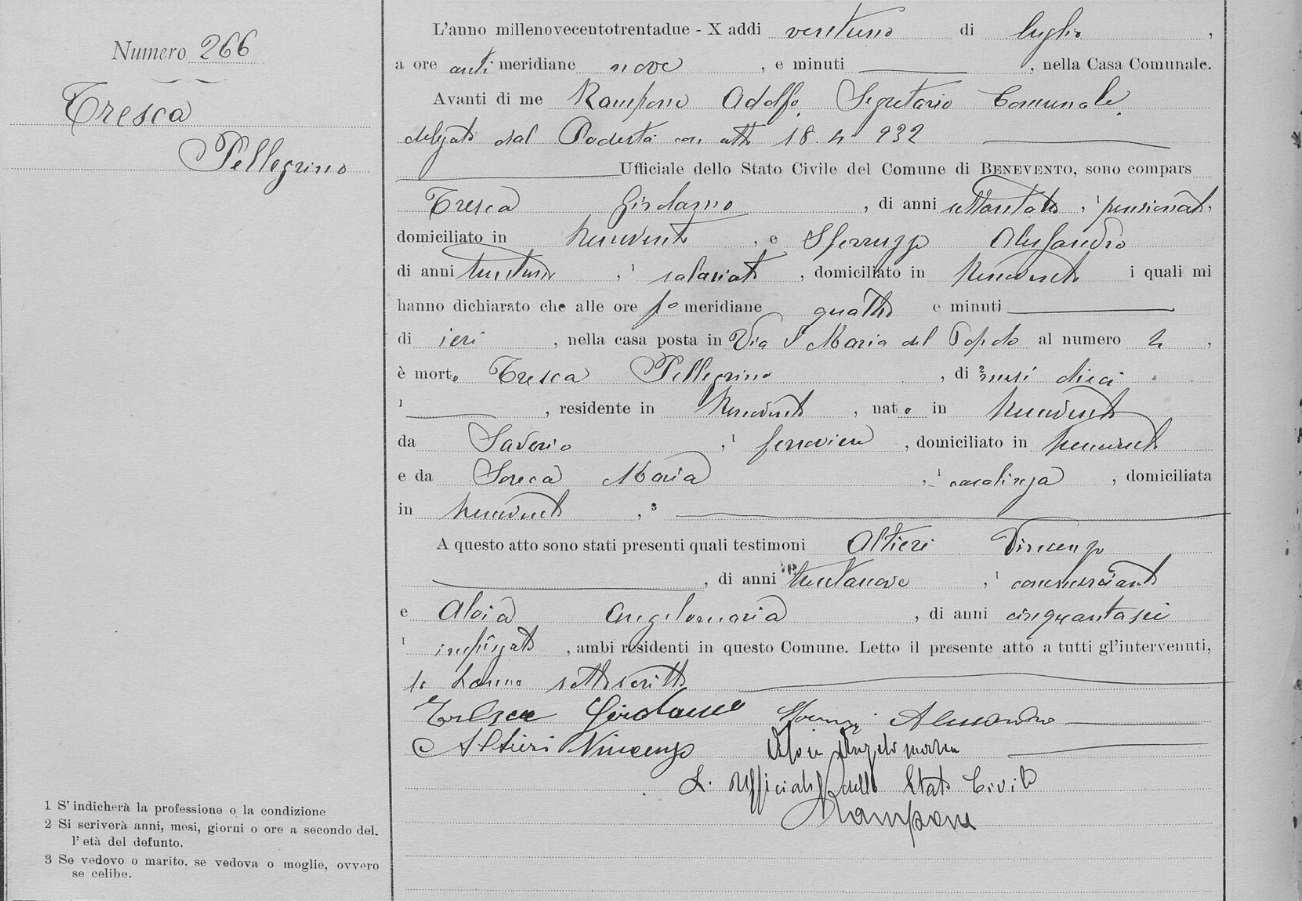 Numero 266
Tresca
Pellegrino
L'anno millenovecentotrentadue - X addì ventuno di luglio,
a ore anti meridiane nove, e minuti , nella Casa Comunale.
Avanti di me Rampone Adolfo Segretario Comunale
delegato dal Podestà con atto 18.4.932
Ufficiale dello Stato Civile del Comune di BENEVENTO, sono compars
Tresca Girolamo, di anni , 1 pensionato,
domiciliato in Benevento, e Alessandro
di anni , 1 salariato, domiciliato in Benevento i quali mi
hanno dichiarato che alle ore po meridiane quattro e minuti
di ieri, nella casa posta in Via S. Maria del Popolo al numero ,
è morto Tresca Pellegrino, di 2 mesi dieci
1 , residente in Benevento, nato in Benevento
da Saverio, 1 ferroviere, domiciliato in Benevento
e da Maria, 1 casalinga, domiciliata
in Benevento, 3
A questo atto sono stati presenti quali testimoni Altieri Vincenzo
, di anni trentanove, 1 commerciante
e Aloia Angelomaria, di anni cinquantasei
1 impiegato, ambi residenti in questo Comune. Letto il presente atto a tutti gl'intervenuti,
lo hanno sottoscritto
Tresca Girolamo Alessandro
Altieri Vincenzo Aloia Angelomaria
L'Ufficiale dello Stato Civile
Rampone
1 S'indicherà la professione o la condizione
2 Si scriverà anni, mesi, giorni o ore a secondo del.
l'età del defunto.
3 Se vedovo o marito, se vedova o moglie, ovvero
se celibe.